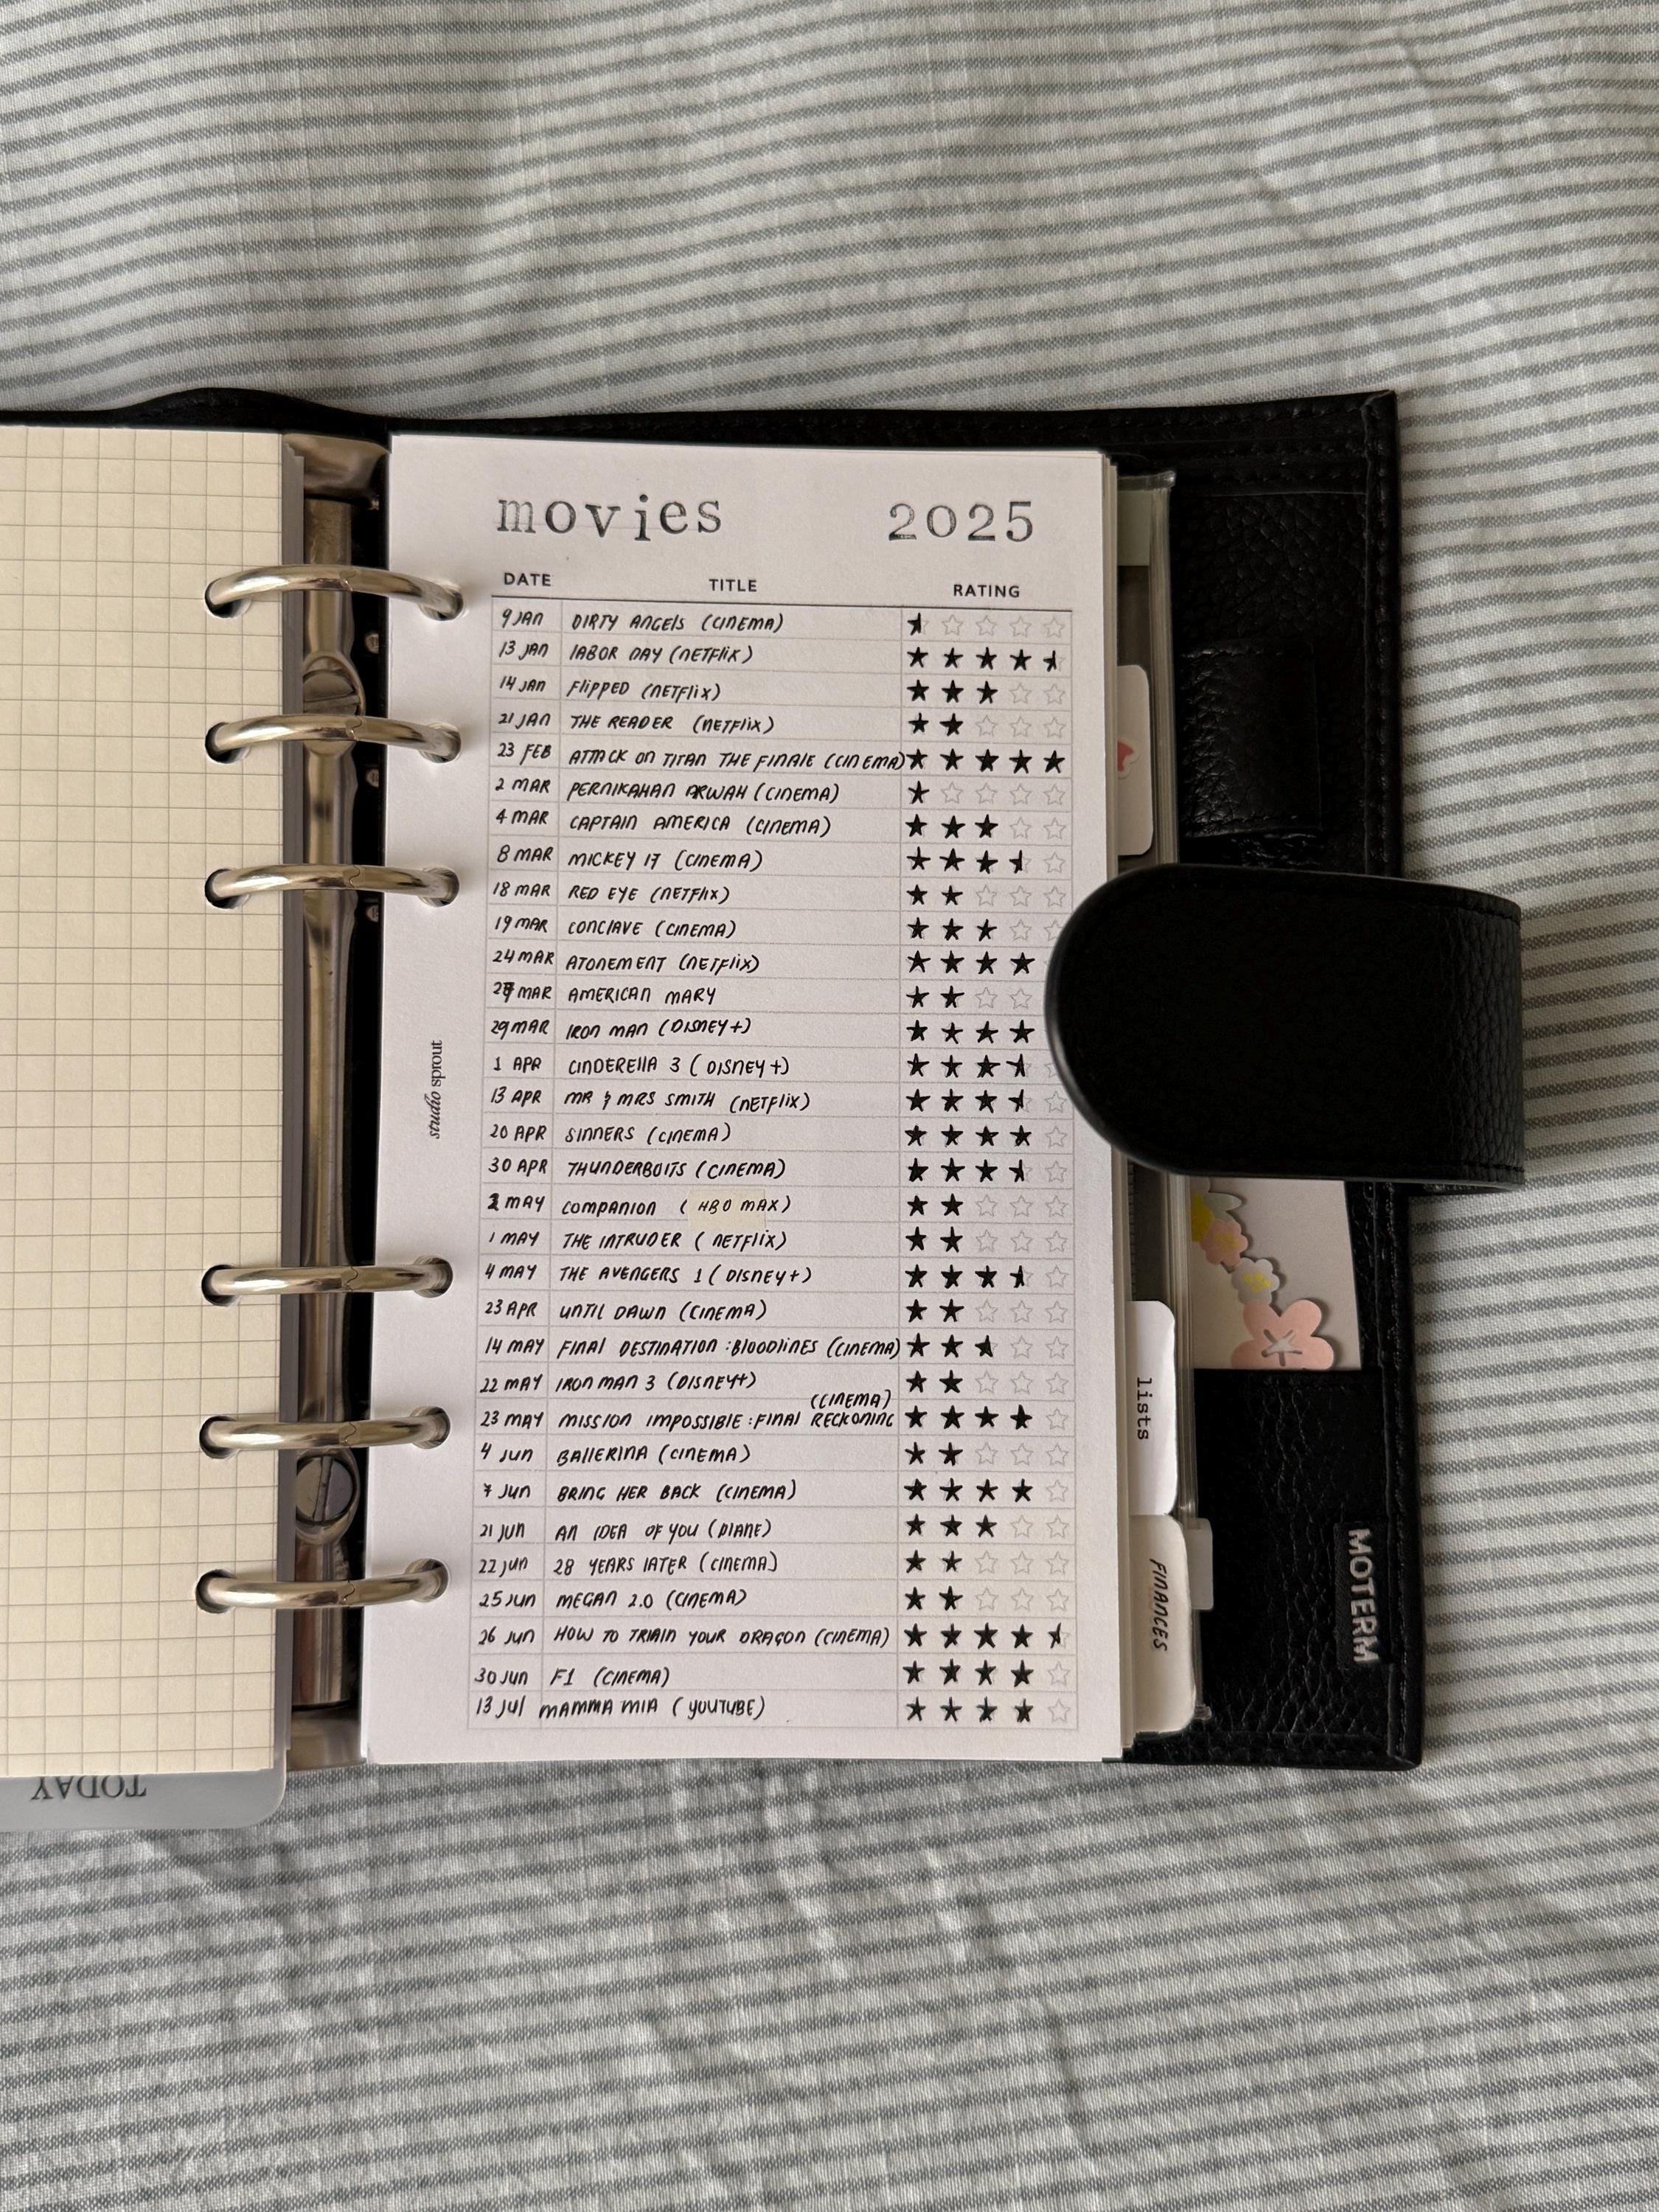 movies 2025
DATE TITLE RATING
9 JAN DIRTY ANGELS (CINEMA)
13 JAN LABOR DAY (NETFLIX)
14 JAN FLIPPED (NETFLIX)
21 JAN THE READER (NETFLIX)
23 FEB ATTACK ON TITAN THE FINALE (CINEMA)
2 MAR PERNIKAHAN ARWAH (CINEMA)
4 MAR CAPTAIN AMERICA (CINEMA)
8 MAR MICKEY 17 (CINEMA)
18 MAR RED EYE (NETFLIX)
19 MAR CONCLAVE (CINEMA)
24 MAR ATONEMENT (NETFLIX)
27 MAR AMERICAN MARY
29 MAR IRON MAN (DISNEY+)
1 APR CINDERELLA 3 (DISNEY+)
13 APR MR & MRS SMITH (NETFLIX)
20 APR SINNERS (CINEMA)
30 APR THUNDERBOLTS (CINEMA)
MAY COMPANION (HBO MAX)
1 MAY THE INTRUDER (NETFLIX)
4 MAY THE AVENGERS 1 (DISNEY+)
23 APR UNTIL DAWN (CINEMA)
14 MAY FINAL DESTINATION : BLOODLINES (CINEMA)
22 MAY IRON MAN 3 (DISNEY+)
23 MAY MISSION IMPOSSIBLE : FINAL RECKONING (CINEMA)
4 JUN BALLERINA (CINEMA)
7 JUN BRING HER BACK (CINEMA)
21 JUN AN IDEA OF YOU (PLANE)
22 JUN 28 YEARS LATER (CINEMA)
25 JUN MEGAN 2.0 (CINEMA)
26 JUN HOW TO TRIAIN YOUR DRAGON (CINEMA)
30 JUN F1 (CINEMA)
13 JUL MAMMA MIA (YOUTUBE)
studio sprout
lists
FINANCES
MOTERM
TODAY